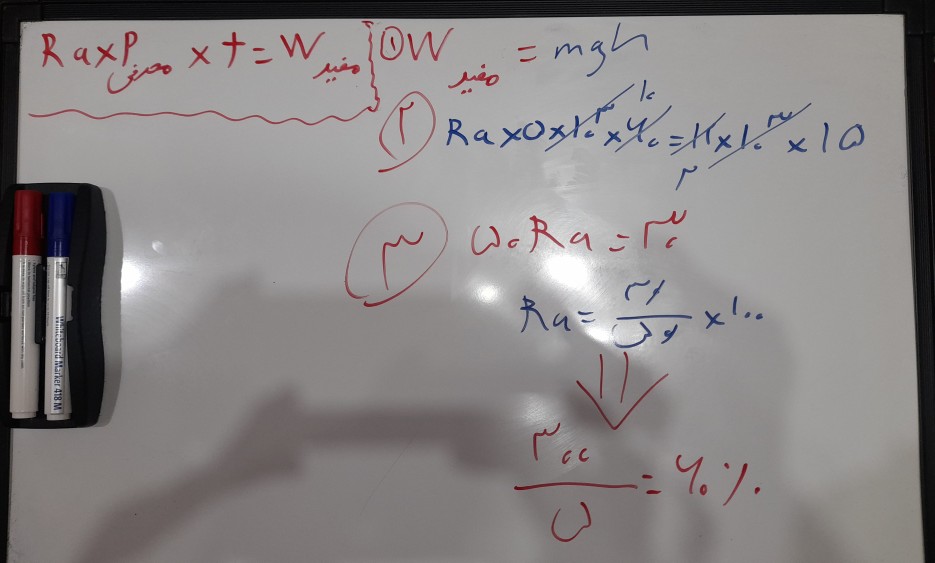 Ra×P مصرفی × t = W مفید
① W مفید = mgh
۱۰
۲ Ra×۵×۱۰^۳×۶۰=۱۲×۱۰^۳×۱۵
۲
۳ ۵۰Ra=۳۰
Ra=۳۰/۵۰×۱۰۰
۳۰۰/۵=۶۰٪
Whiteboard Marker 418 M